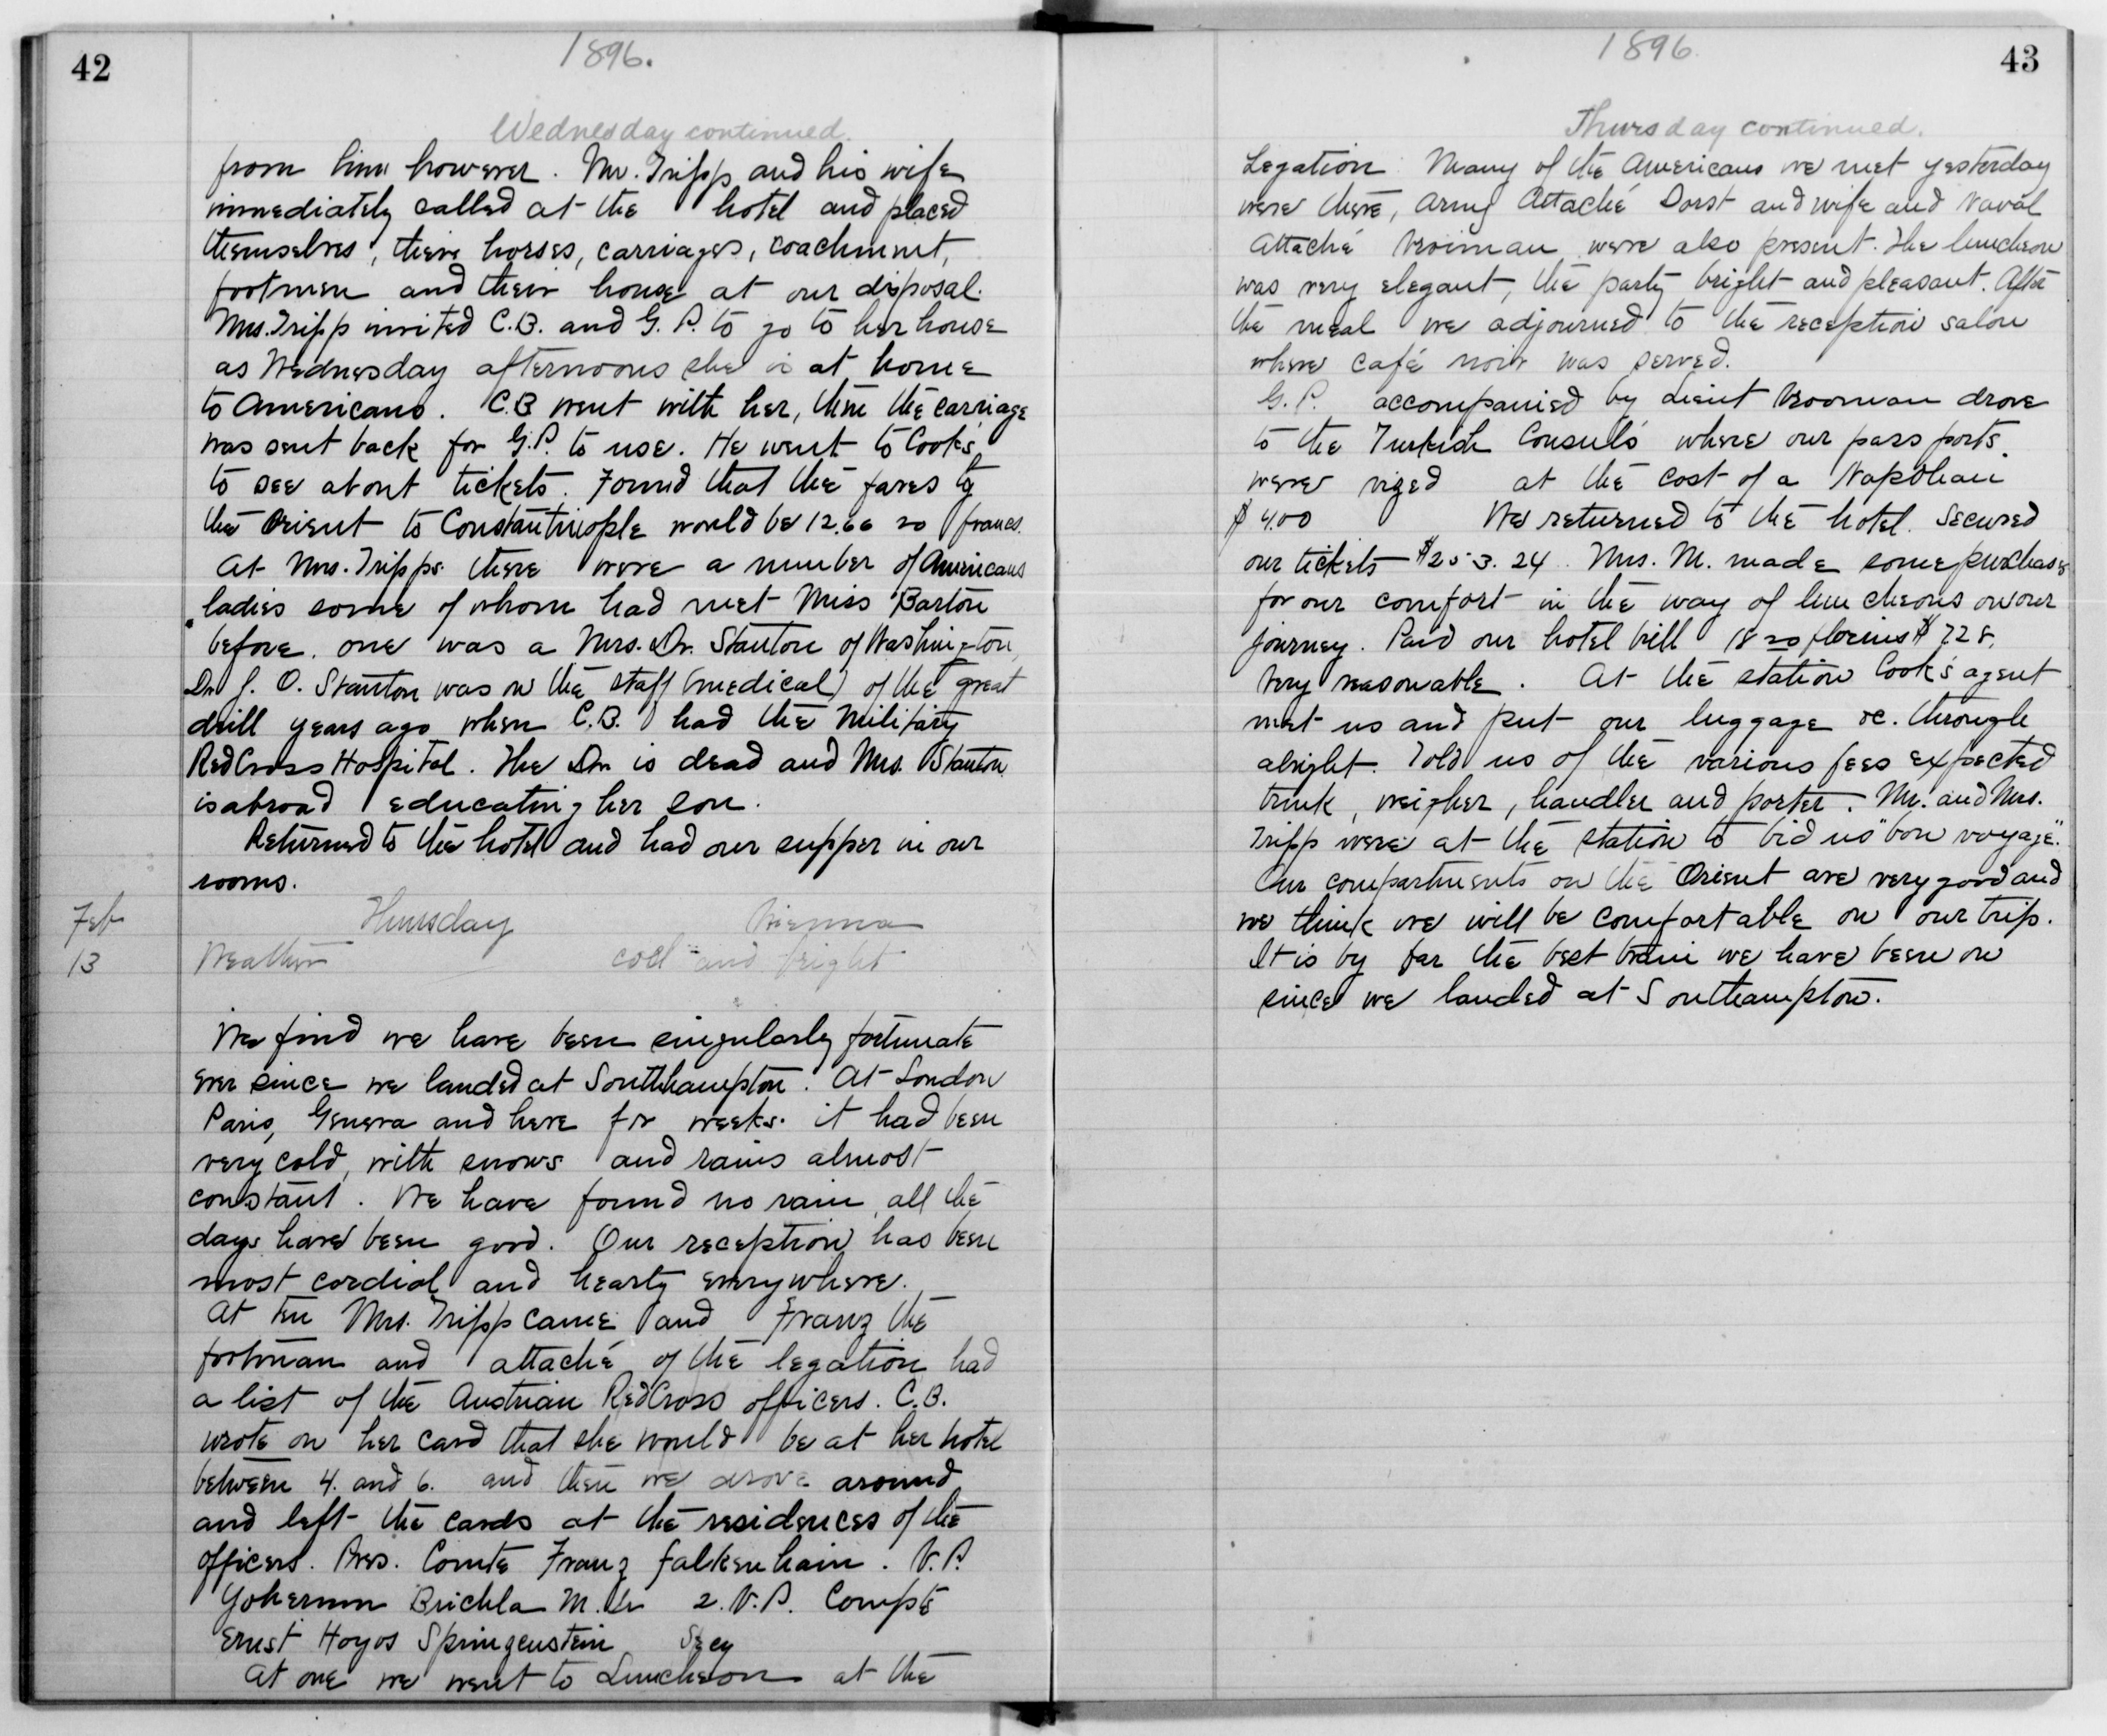 42
1896.
Wednesday continued.
from him however. Mr. Tripp and his wife
immediately called at the hotel and placed
themselves, their horses, carriages, coachment,
footmen and their house at our disposal.
Mrs. Tripp invited C.B. and G.P. to go to her house
as Wednesday afternoons she is at home
to Americans. C.B went with her, then the carriage
was sent back for G.P. to use. He went to Cook's
to see about tickets. Found that the fares by
the Orient to Constantinople would be 12.66 20 francs.
At Mrs. Tripps there were a number of Americans
ladies some of whom had met Miss Barton
before. one was a Mrs. Dr. Stanton of Washington,
Dr J. O. Stanton was on the staff (medical) of the great
drill years ago when C.B. had the Military
Red Cross Hospital. The Dr. is dead and Mrs. Stanton
is abroad educating her son.
Returned to the hotel and had our supper in our
rooms.
Feb Thursday Vienna
13 Weather cool and bright
We find we have been singularly fortunate
ever since we landed at Southhampton. At London
Paris, Geneva and here for weeks it had been
very cold, with snows and rains almost
constant. We have found no rain, all the
days have been good. Our reception has been
most cordial and hearty everywhere.
At ten Mrs. Tripp came and Franz the
footman and attaché of the legation had
a list of the Austrian Red Cross officers. C.B.
wrote on her card that she would be at her hotel
between 4. and 6. and then we drove around
and left the cards at the residences of the
officers. Pres. Comte Franz Falkenhain. V.P.
Brichla 2. V.P. Compte
Ernst Hoyos Springenstein Secy
At one we went to Luncheon at the
1896
43
Thursday continued.
Legation. Many of the Americans we met yesterday
were there, Army Attaché Dorst and wife and Naval
Attaché Vroiman were also present. The luncheon
was very elegant, the party bright and pleasant. After
the meal we adjourned to the reception salon
where café noir was served.
G.P. accompanied by Lieut Vrooman drove
to the Turkish Consuls where our passports
were vized at the cost of a Napolean
$4.00 We returned to the hotel. Secured
our tickets $253.24. Mrs. M. made some purchases
for our comfort in the way of luncheons on our
journey. Paid our hotel bill 18 20 florins $ 7.28.
Very reasonable. At the station Cook's agent
met us and put our luggage &c. through
alright. Told us of the various fees expected
trunk, weigher, handler and porter. Mr. and Mrs.
Tripp were at the station to bid us "bon voyage."
Our compartments on the Orient are very good and
we think we will be comfortable on our trip.
It is by far the best train we have been on
since we landed at Southampton.